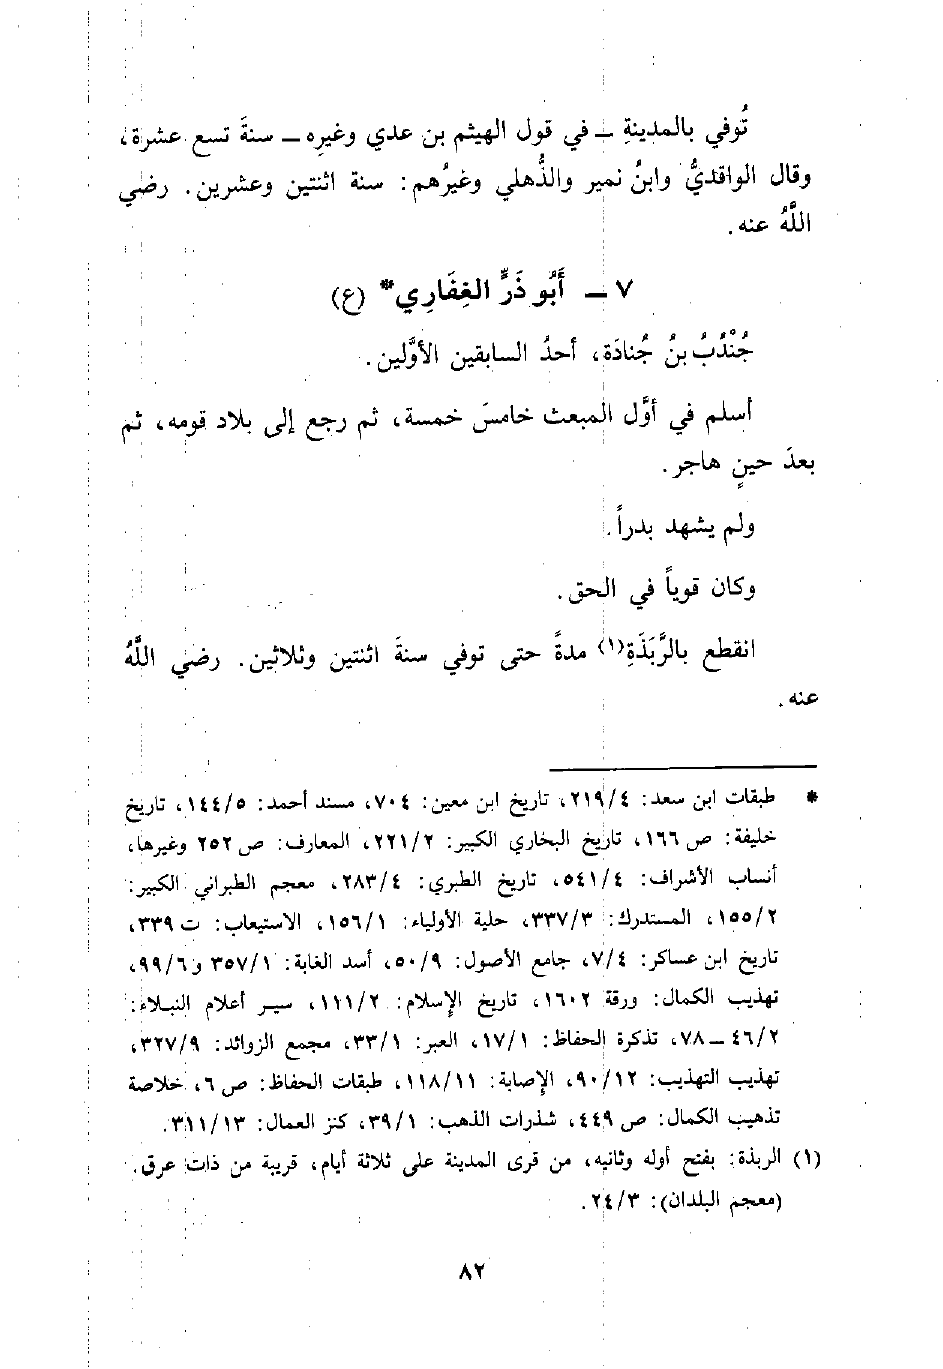 تُوفي بالمدينةِ – في قول الهيثم بن عدي وغيرِه – سنةَ تسع عشرة،
وقال الواقديُّ وابنُ نمير والذُّهلي وغيرُهم: سنة اثنتين وعشرين. رضي
اللَّهُ عنه.
٧ – أَبُو ذَرٍّ الغِفَارِي* (ع)
جُنْدُبُ بنُ جُنادَة، أحدُ السابقين الأوَّلين.
أسلم في أوَّل المبعث خامسَ خمسة، ثم رجع إلى بلاد قومه، ثم
بعدَ حينٍ هاجر.
ولم يشهد بدراً.
وكان قوياً في الحق.
انقطع بالرَّبَذَةِ(١) مدةً حتى توفي سنةَ اثنتين وثلاثين. رضي اللَّهُ
عنه.
* طبقات ابن سعد: ٢١٩/٤، تاريخ ابن معين: ٧٠٤، مسند أحمد: ١٤٤/٥، تاريخ
خليفة: ص ١٦٦، تاريخ البخاري الكبير: ٢٢١/٢، المعارف: ص ٢٥٢ وغيرها،
أنساب الأشراف: ٥٤١/٤، تاريخ الطبري: ٢٨٣/٤، معجم الطبراني الكبير:
١٥٥/٢، المستدرك: ٣٣٧/٣، حلية الأولياء: ١٥٦/١، الاستيعاب: ت ٣٣٩،
تاريخ ابن عساكر: ٧/٤، جامع الأصول: ٥٠/٩، أسد الغابة: ٣٥٧/١ و٩٩/٦،
تهذيب الكمال: ورقة ١٦٠٢، تاريخ الإسلام: ١١١/٢، سير أعلام النبلاء:
٤٦/٢ – ٧٨، تذكرة الحفاظ: ١٧/١، العبر: ٣٣/١، مجمع الزوائد: ٣٢٧/٩،
تهذيب التهذيب: ٩٠/١٢، الإصابة: ١١٨/١١، طبقات الحفاظ: ص ٦، خلاصة
تذهيب الكمال: ص ٤٤٩، شذرات الذهب: ٣٩/١، كنز العمال: ٣١١/١٣.
(١) الربذة: بفتح أوله وثانيه، من قرى المدينة على ثلاثة أيام، قريبة من ذات عرق.
(معجم البلدان): ٢٤/٣.
٨٢